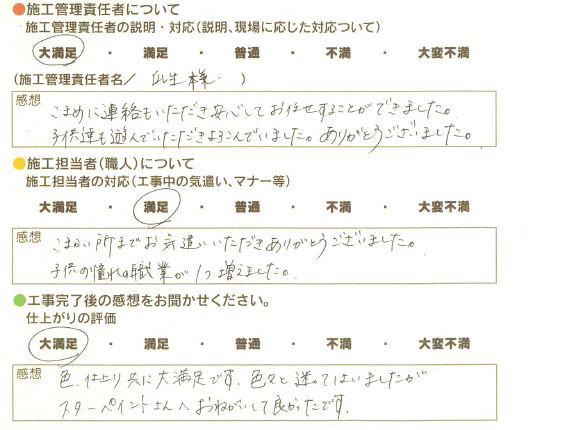 ●施工管理責任者について
施工管理責任者の説明・対応(説明、現場に応じた対応ついて)
大満足 ・ 満足 ・ 普通 ・ 不満 ・ 大変不満
(施工管理責任者名/ 様 )
感想
こまめに連絡もいただき安心してお任せすることができました。
子供達も遊んでいただきよろこんでいました。ありがとうございました。
●施工担当者(職人)について
施工担当者の対応(工事中の気遣い、マナー等)
大満足 ・ 満足 ・ 普通 ・ 不満 ・ 大変不満
感想
こまかい所までお気遣いいただきありがとうございました。
子供の憧れの職業が1つ増えました。
●工事完了後の感想をお聞かせください。
仕上がりの評価
大満足 ・ 満足 ・ 普通 ・ 不満 ・ 大変不満
感想
色、仕上り共に大満足です。色々と迷ってはいましたが
スターペイントさんへおねがいして良かったです。